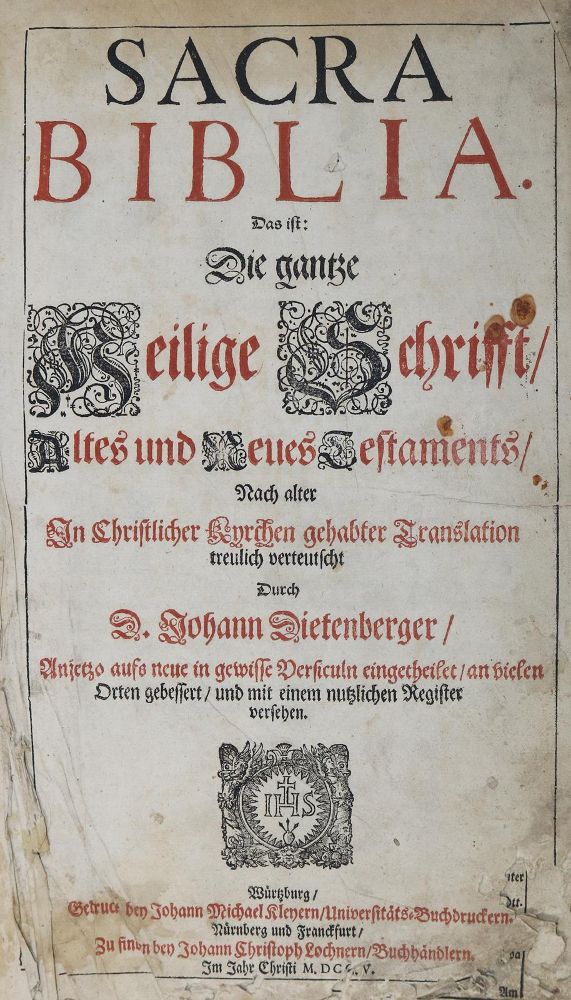 SACRA
BIBLIA.
Das ist:
Die gantze
Heilige Schrifft/
Altes und Neues Testaments/
Nach alter
In Christlicher Kyrchen gehabter Translation
treulich verteutscht
Durch
D. Johann Dietenberger/
Anjetzo aufs neue in gewisse Versiculn eingetheilet/ an vielen
Orten gebessert/ und mit einem nutzlichen Register
versehen.
IHS
Würtzburg/
Gedruct bey Johann Michael Kleyern/ Universitäts-Buchdruckern.
Nürnberg und Franckfurt/
Zu finden bey Johann Christoph Lochnern/ Buchhändlern.
Im Jahr Christi
Am